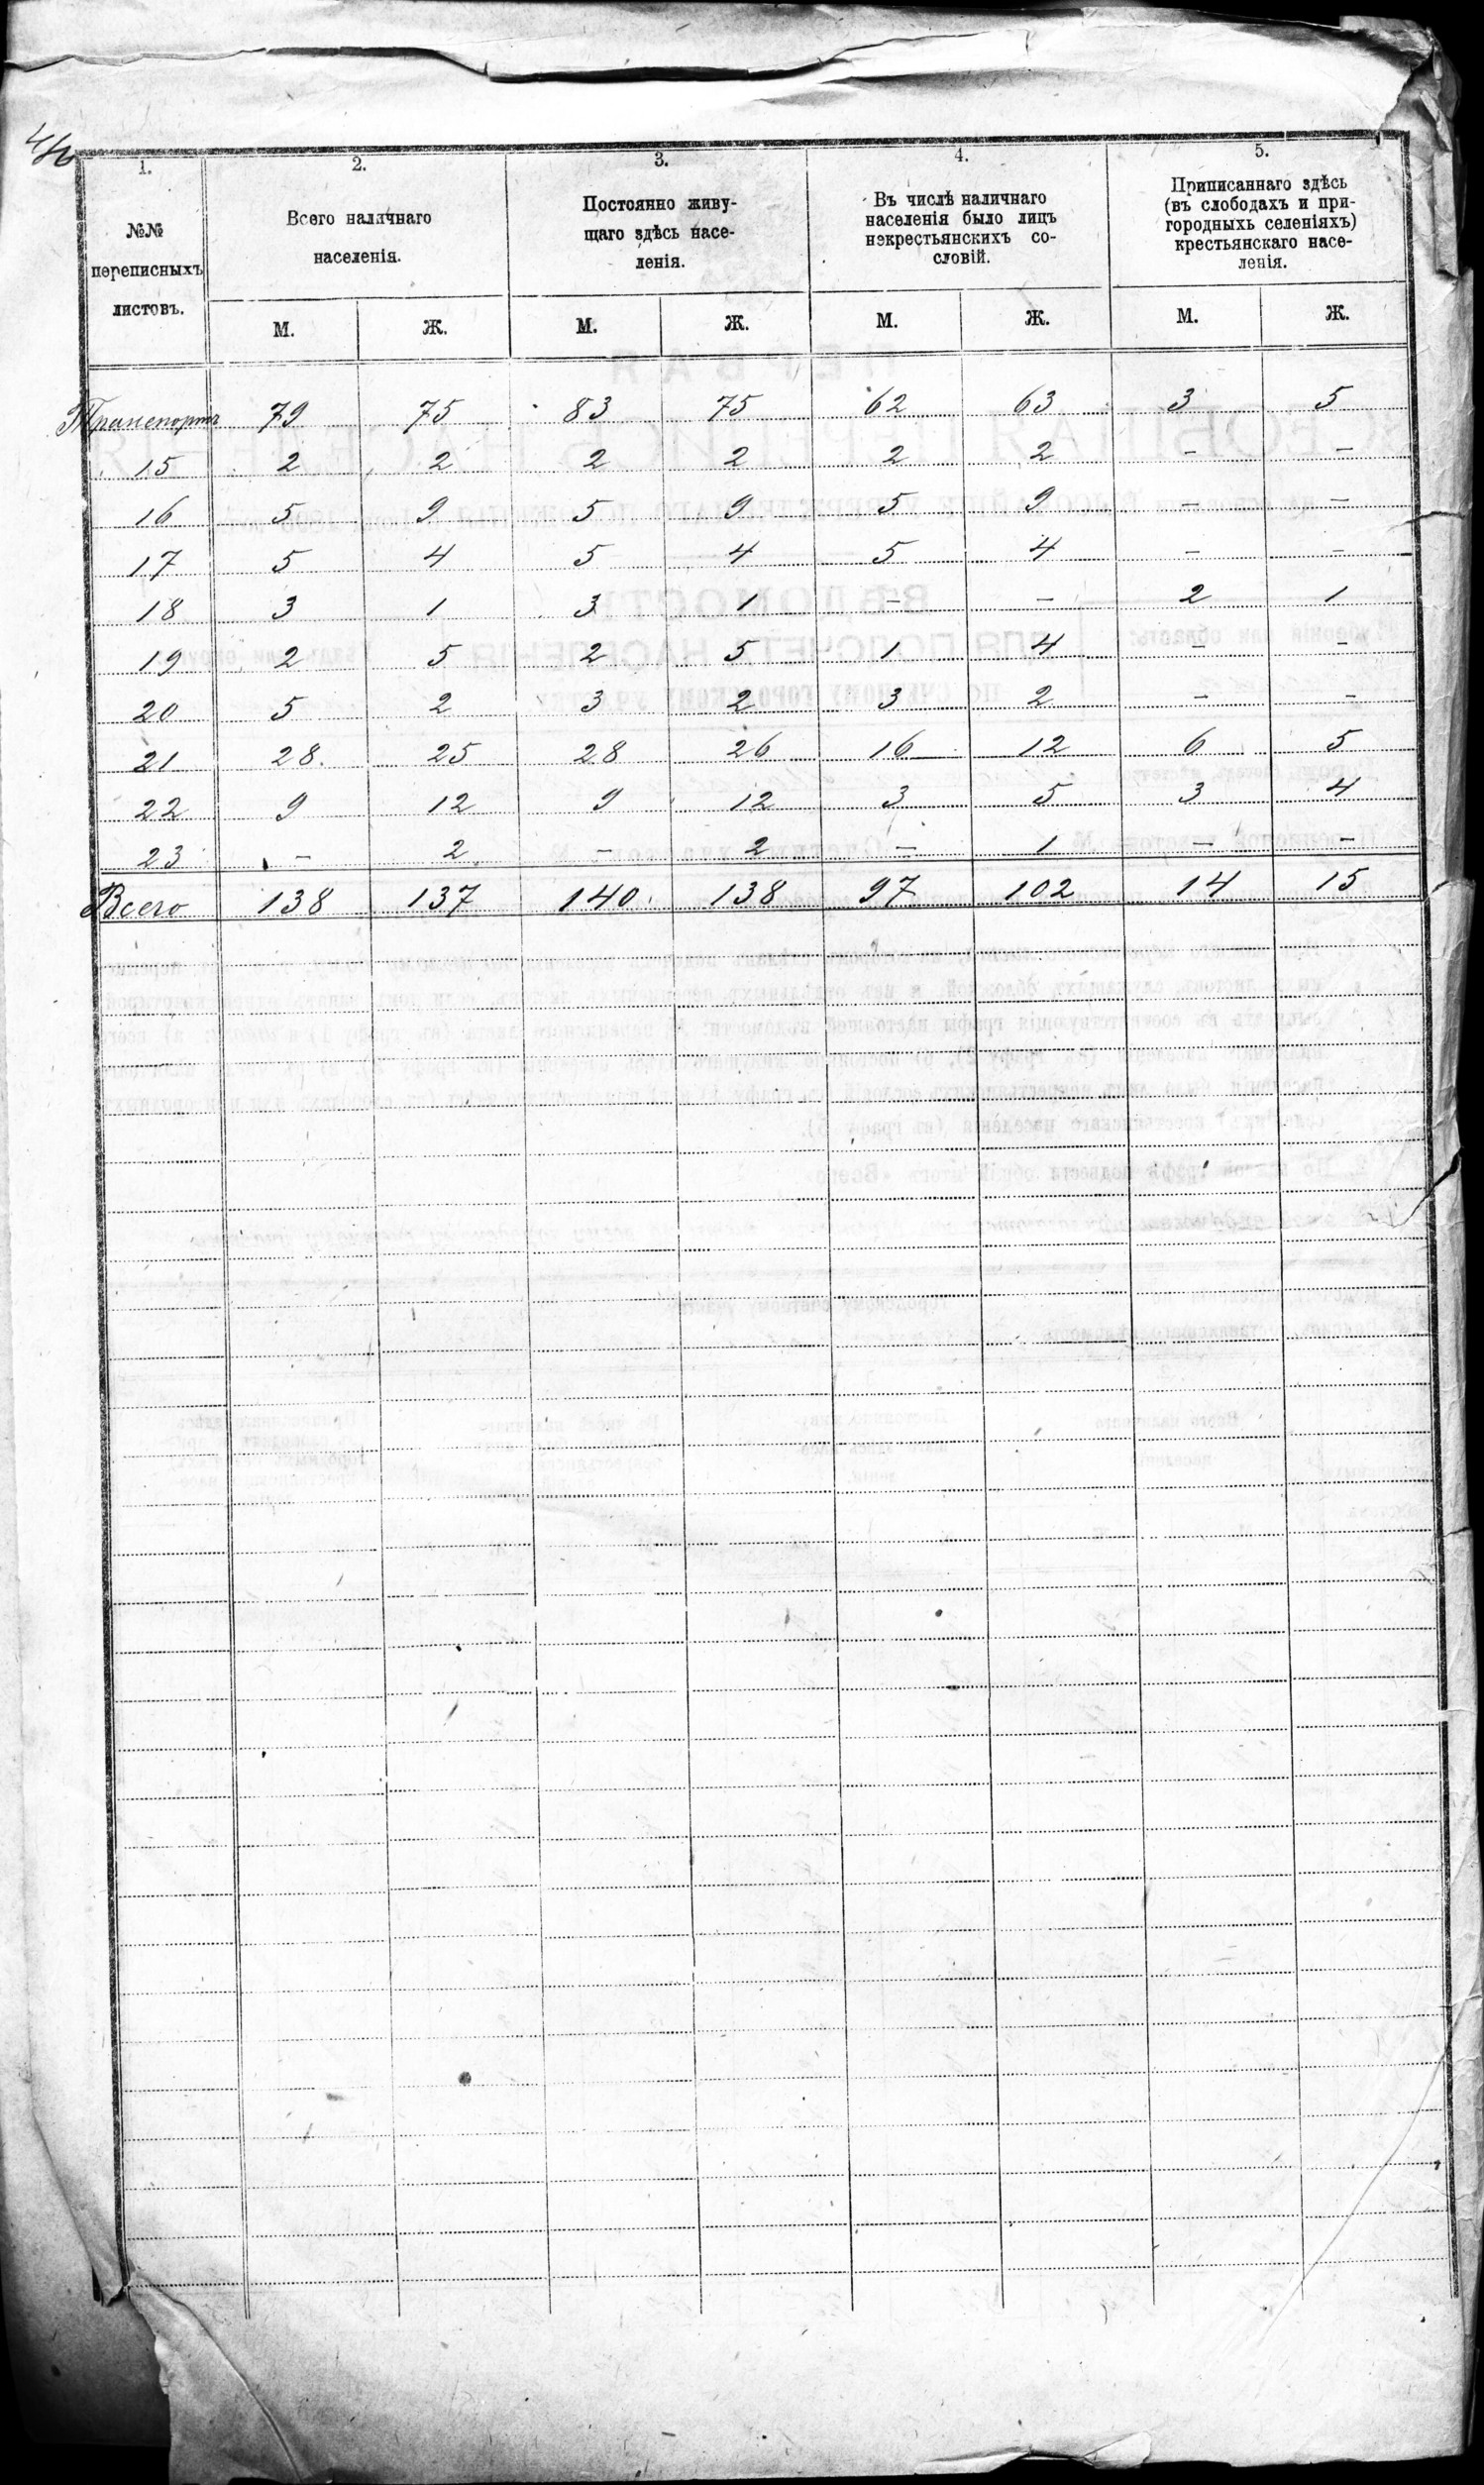 1. 2. 3. 4. 5.
№№ переписныхъ листовъ. Всего наличнаго населенія. Постоянно живу-щаго здѣсь насе-ленія. Въ числѣ наличнаго населенія было лицъ некрестьянскихъ со-словій. Приписаннаго здѣсь (въ слободахъ и при-городныхъ селеніяхъ) крестьянскаго насе-ленія.
М. Ж. М. Ж. М. Ж. М. Ж.
Транспортъ 79 75 83 75 62 63 3 5
15 2 2 2 2 2 2 - -
16 5 9 5 9 5 9 - -
17 5 4 5 4 5 4 - -
18 3 1 3 1 - - 2 1
19 2 5 2 5 1 4 - -
20 5 2 3 2 3 2 - -
21 28 25 28 26 16 12 6 5
22 9 12 9 12 3 5 3 4
23 - 2 - 2 - 1 - -
Всего 138 137 140 138 97 102 14 15